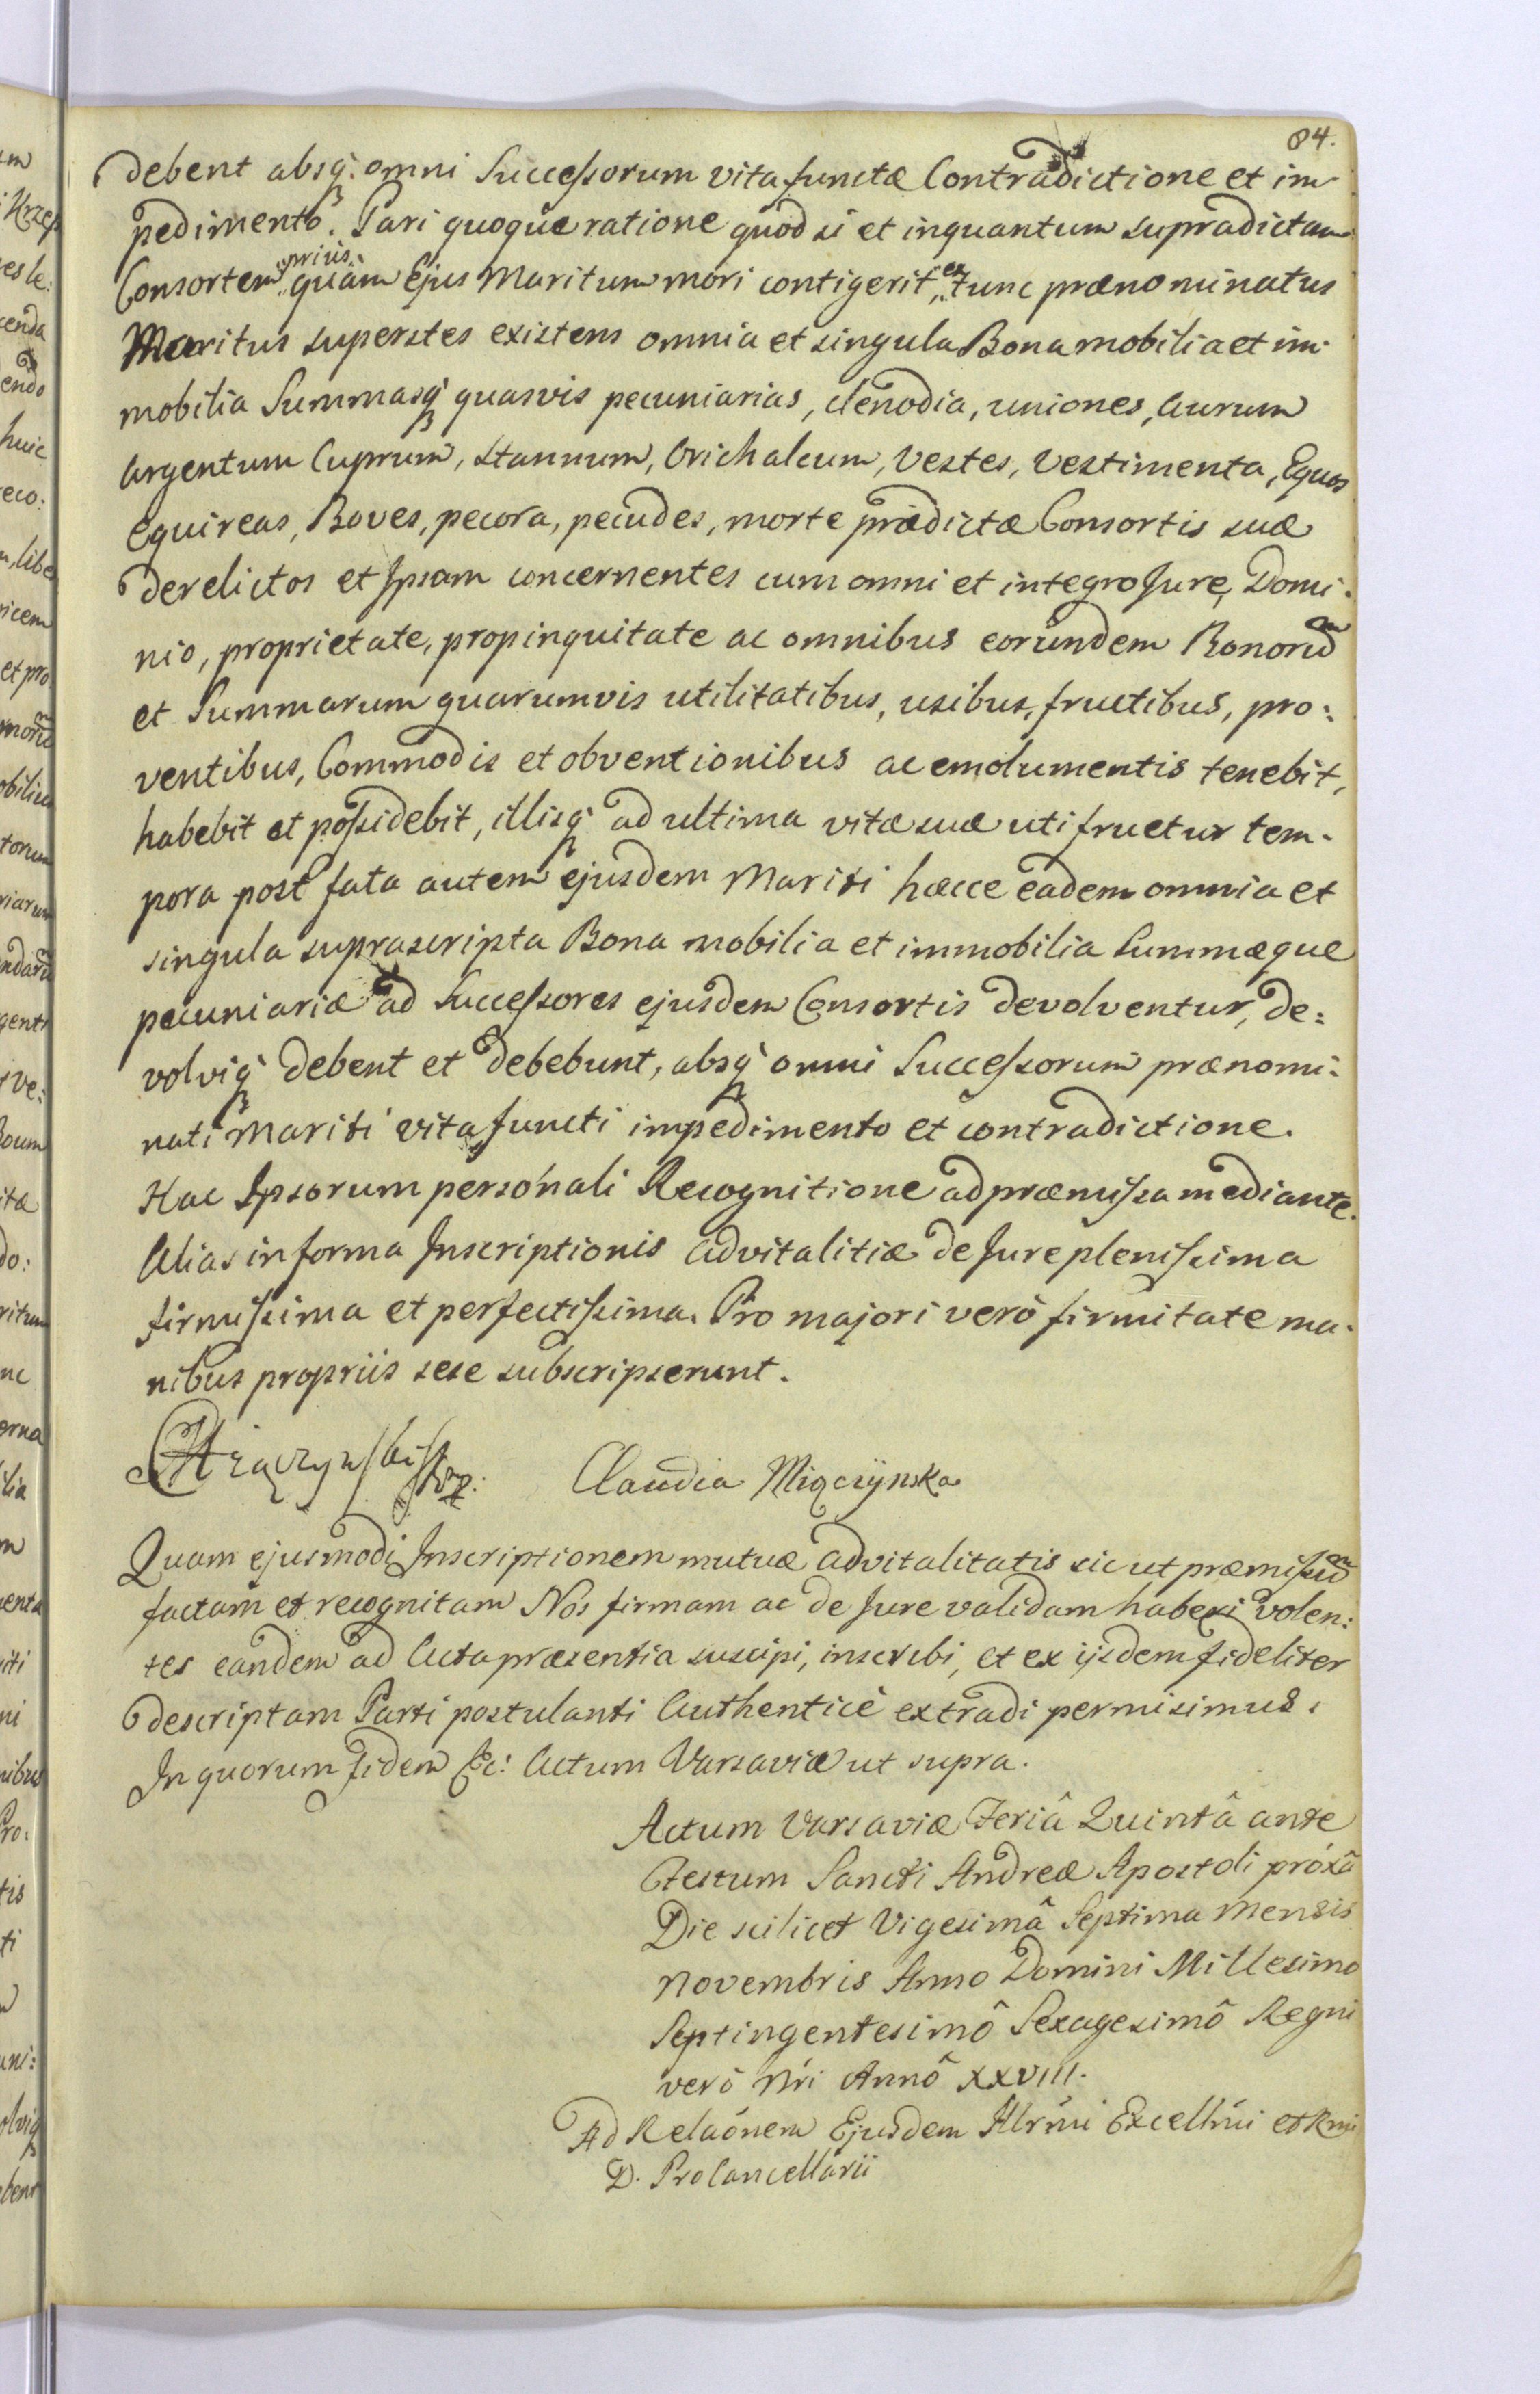 84.
debent absq; omni Successorum vita functæ Contradictione et im
pedimento. Pari quoque ratione quod si et inquantum supradictam
Consortem prius quàm Ejus Maritum mori contigerit, ex tunc prænominatus
Maritus superstes existens omnia et singula Bona mobilia et im:
mobilia Summasq; quasvis pecuniarias, clenodia, uniones, Aurum
Argentum Cuprum, Stannum, Orichalcum, Vestes, Vestimenta, Equos
Equireas, Boves, pecora, pecudes, morte prædictæ Consortis suæ
derelictos et Ipsam concernentes cum omni et integro Jure, Domi:
nio, proprietate, propinquitate ac omnibus eorundem Bonorum
et Summarum quarumvis utilitatibus, usibus, fructibus, pro:
ventibus, Commodis et obventionibus ac emolumentis tenebit,
habebit et possidebit, illisq; ad ultima vitæ suæ uti fruetur tem-
pora post fata autem ejusdem Mariti hæcce eadem omnia et
singula suprascripta Bona mobilia et immobilia Summæque
pecuniariæ ad Successores ejusdem Consortis devolventur, de:
volviq; debent et debebunt, absq; omni Successorum prænomi:
nati Mariti vita functi impedimento et contradictione.
Hac Ipsorum personali Recognitione ad præmissa mediante.
Alias in forma Inscriptionis advitalitiæ de Jure plenissima
firmissima et perfectissima. Pro majori verò firmitate ma:
nibus propriis sese subscripserunt.
Miączyński Claudia Miączÿnska
Quam ejusmodi Inscriptionem mutuæ advitalitatis sic ut præmissum
factam et recognitam Nos firmam ac de Jure validam haberi volen:
tes eandem ad Acta præsentia suscipi, inscribi, et ex ijsdem fideliter
descriptam Parti postulanti Authenticè extradi permisimus.
In quorum fidem &c: Actum Varsaviæ ut supra.
Actum Varsaviæ Feriâ Quintâ ante
Festum Sancti Andreæ Apostoli próxâ
Die scilicet Vigesimâ Septima Mensis
Novembris Anno Domini Millesimo
Septingentesimô Sexagesimô Regni
verò Nri Annô XXVIII.
Ad Relaónem Ejusdem Illrmi Excellmi et Rmi
D. ProCancellarii